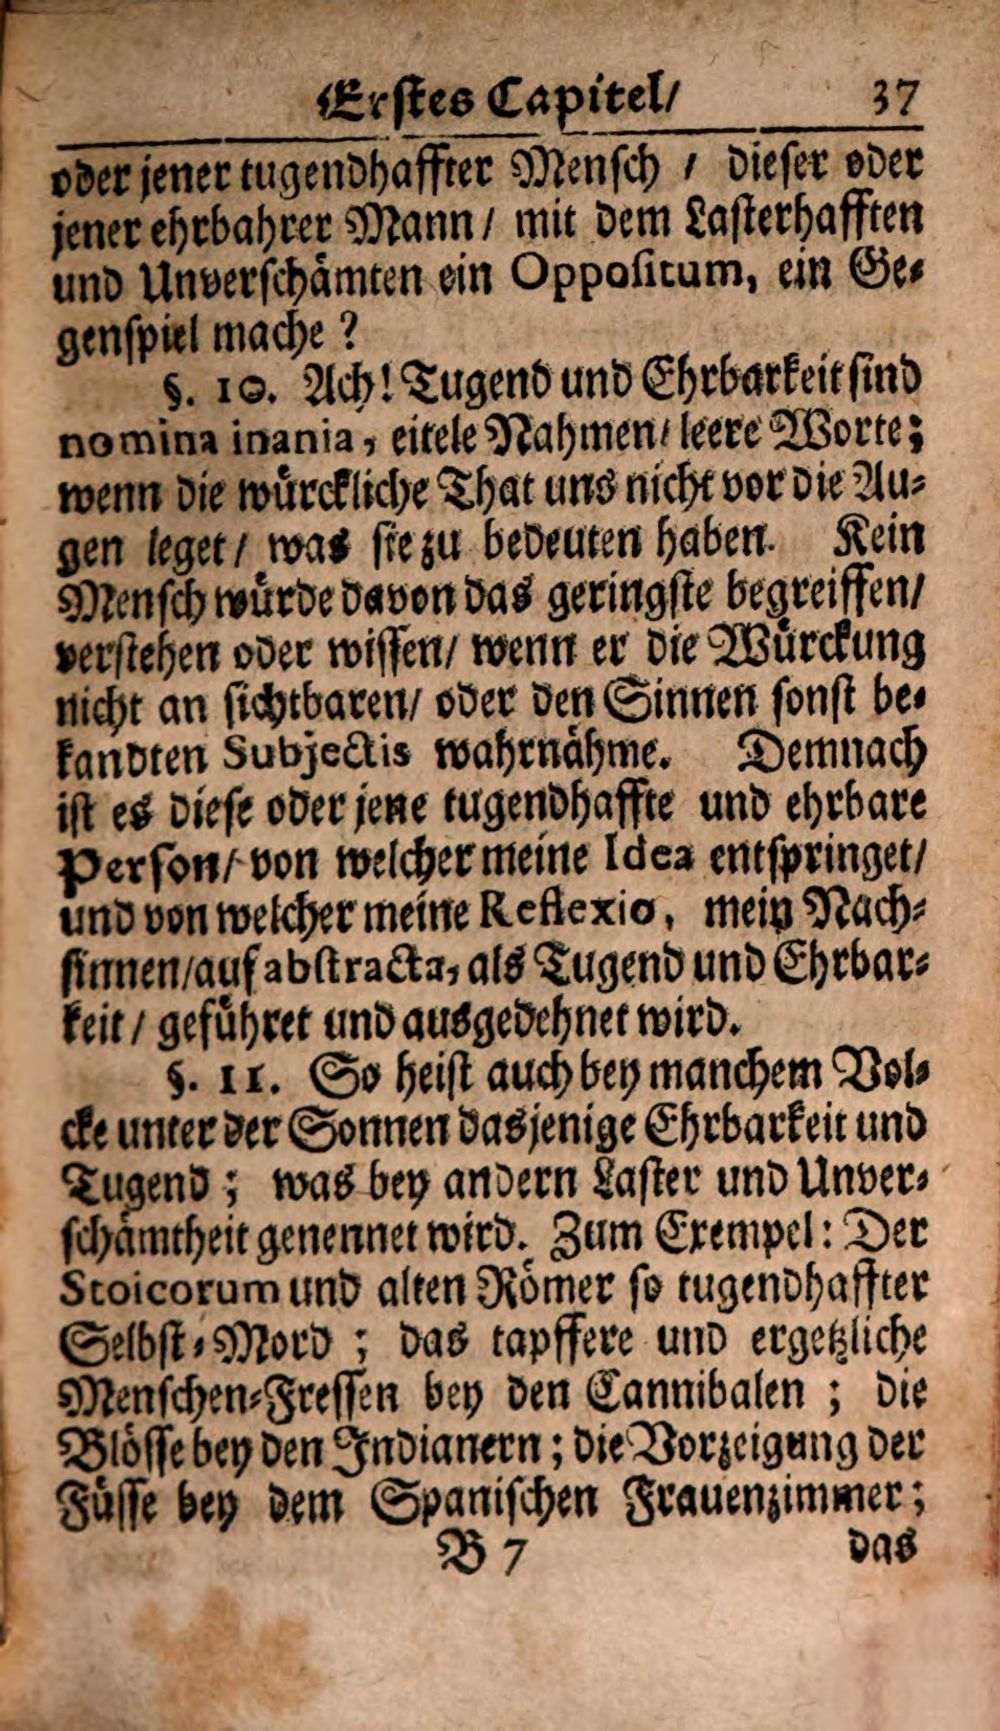 Erstes Capitel/ 37
oder jener tugendhaffter Mensch / dieser oder
jener ehrbahrer Mann/ mit dem Lasterhafften
und Unverschämten ein Oppositum, ein Ge-
genspiel mache ?
§. 10. Ach! Tugend und Ehrbarkeit sind
nomina inania, eitele Nahmen/ leere Worte;
wenn die würckliche That uns nicht vor die Au-
gen leget/ was sie zu bedeuten haben. Kein
Mensch würde davon das geringste begreiffen/
verstehen oder wissen/ wenn er die Würckung
nicht an sichtbaren/ oder den Sinnen sonst be-
kandten Subjectis wahrnähme. Demnach
ist es diese oder jene tugendhaffte und ehrbare
Person/ von welcher meine Idea entspringet/
und von welcher meine Reflexio, mein Nach-
sinnen/ auf abstracta, als Tugend und Ehrbar-
keit / geführet und ausgedehnet wird.
§. 11. So heist auch bey manchem Vol-
cke unter der Sonnen dasjenige Ehrbarkeit und
Tugend ; was bey andern Laster und Unver-
schämtheit genennet wird. Zum Exempel: Der
Stoicorum und alten Römer so tugendhaffter
Selbst-Mord ; das tapffere und ergetzliche
Menschen-Fressen bey den Cannibalen ; die
Blösse bey den Indianern ; die Vorzeigung der
Füsse bey dem Spanischen Frauenzimmer ;
B 7 das